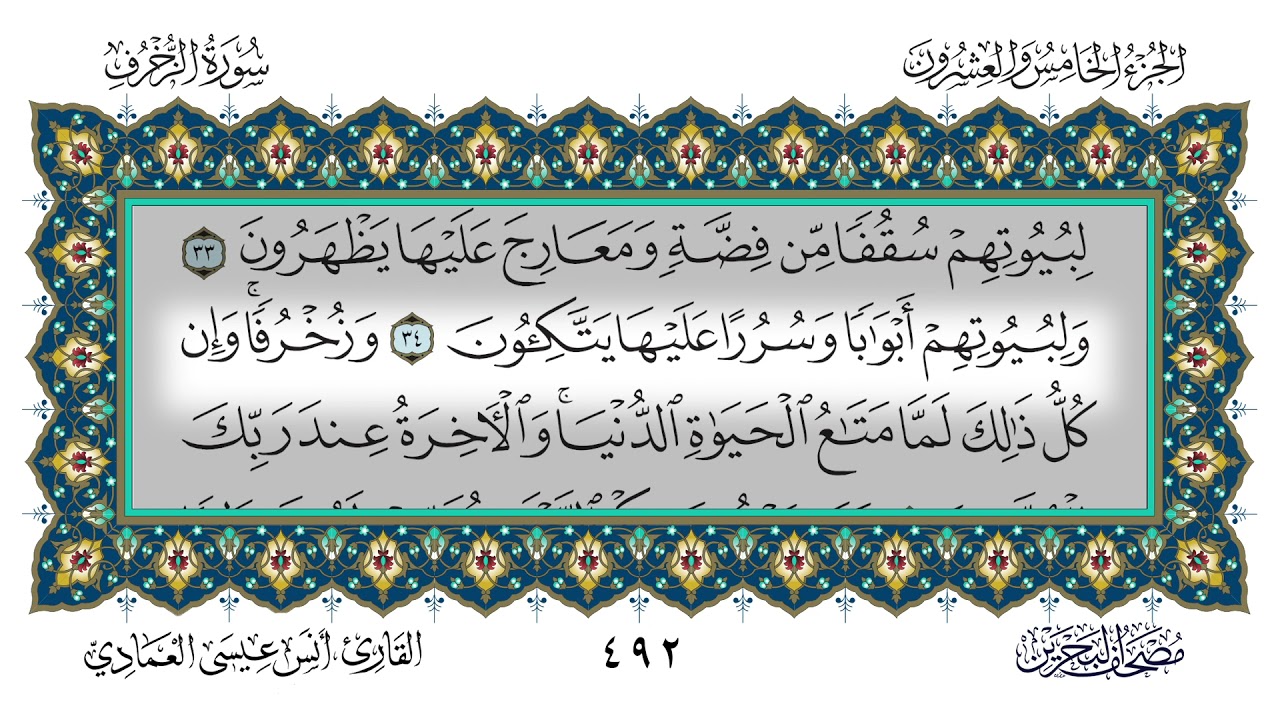 الجزء الخامس والعشرون
سورة الزخرف
لِبُيُوتِهِمْ سُقُفًا مِّن فِضَّةٍ وَمَعَارِجَ عَلَيْهَا يَظْهَرُونَ ٣٣
وَلِبُيُوتِهِمْ أَبْوَٰبًا وَسُرُرًا عَلَيْهَا يَتَّكِـُٔونَ ٣٤ وَزُخْرُفًاۚ وَإِن
كُلُّ ذَٰلِكَ لَمَّا مَتَـٰعُ ٱلْحَيَوٰةِ ٱلدُّنْيَاۚ وَٱلْأَخِرَةُ عِندَ رَبِّكَ
مصحف البحرين
٤٩٢
القارئ، أنس عيسى العمادي